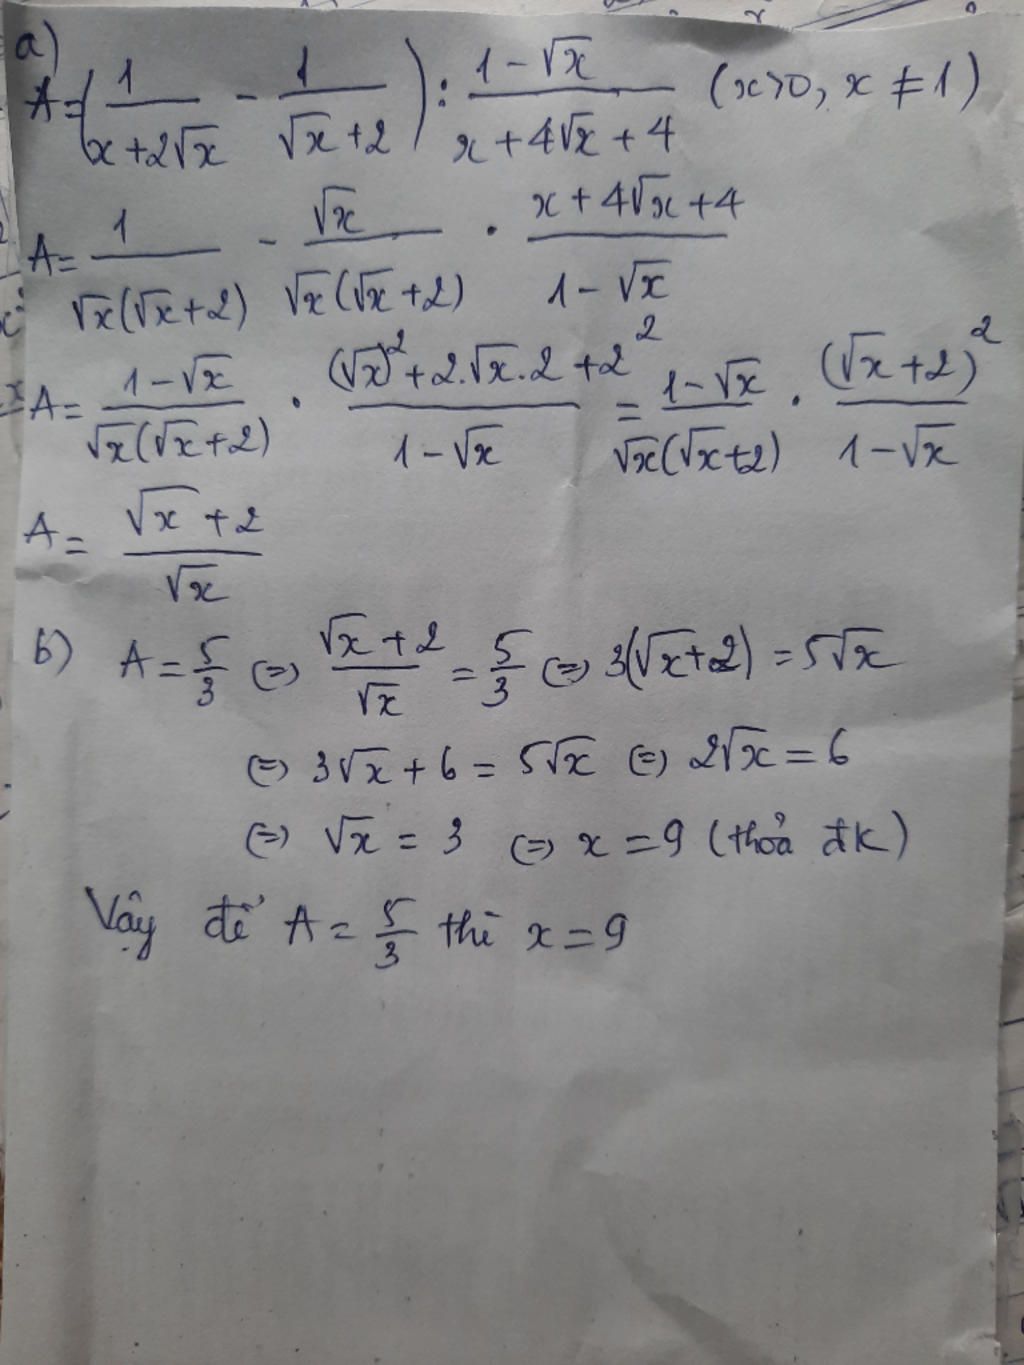 a)
A=(1/(x+2√x) - 1/(√x+2)) : (1-√x)/(x+4√x+4) (x>0, x≠1)
A= 1/(√x(√x+2)) - √x/(√x(√x+2)) . (x+4√x+4)/(1-√x)
A= (1-√x)/(√x(√x+2)) . ((√x)²+2.√x.2+2²)/(1-√x) = (1-√x)/(√x(√x+2)) . (√x+2)²/(1-√x)
A= (√x+2)/√x
b) A=5/3 (=) (√x+2)/√x = 5/3 (=) 3(√x+2)=5√x
(=) 3√x+6 = 5√x (=) 2√x=6
(=) √x = 3 (=) x=9 (thỏa đk)
Vậy để A=5/3 thì x=9